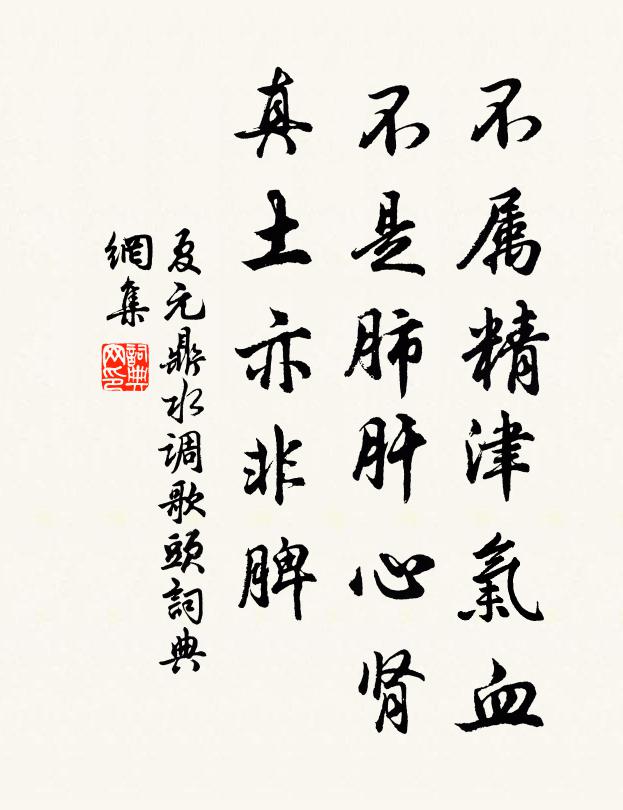 不属精津氣血
不是肺肝心肾
真土亦非脾
夏元鼎水调歌頭詞典
網集
詞典
网印